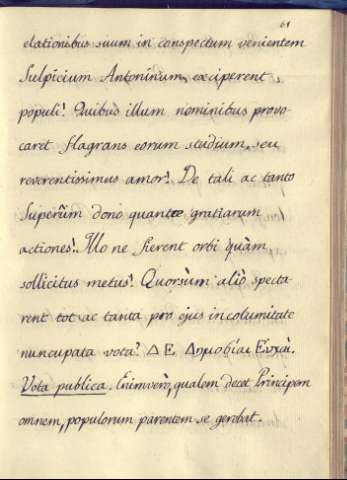 61
clationibus suum in conspectum venientem
Sulpicium Antoninum, exciperent
populi! Quibus illum nominibus provo-
caret flagrans eorum studium, seu
reverentissimus amor! De tali ac tanto
Superûm dono quantæ gratiarum
actiones! Illo ne fierent orbi quàm
sollicitus metus! Quorsùm aliò specta-
rent tot ac tanta pro ejus incolumitate
nuncupata vota? Δ Ε. Δημοσίαι Ευχαὶ.
Vota publica. Enimverò, qualem decet Principem
omnem, populorum parentem se gerebat.